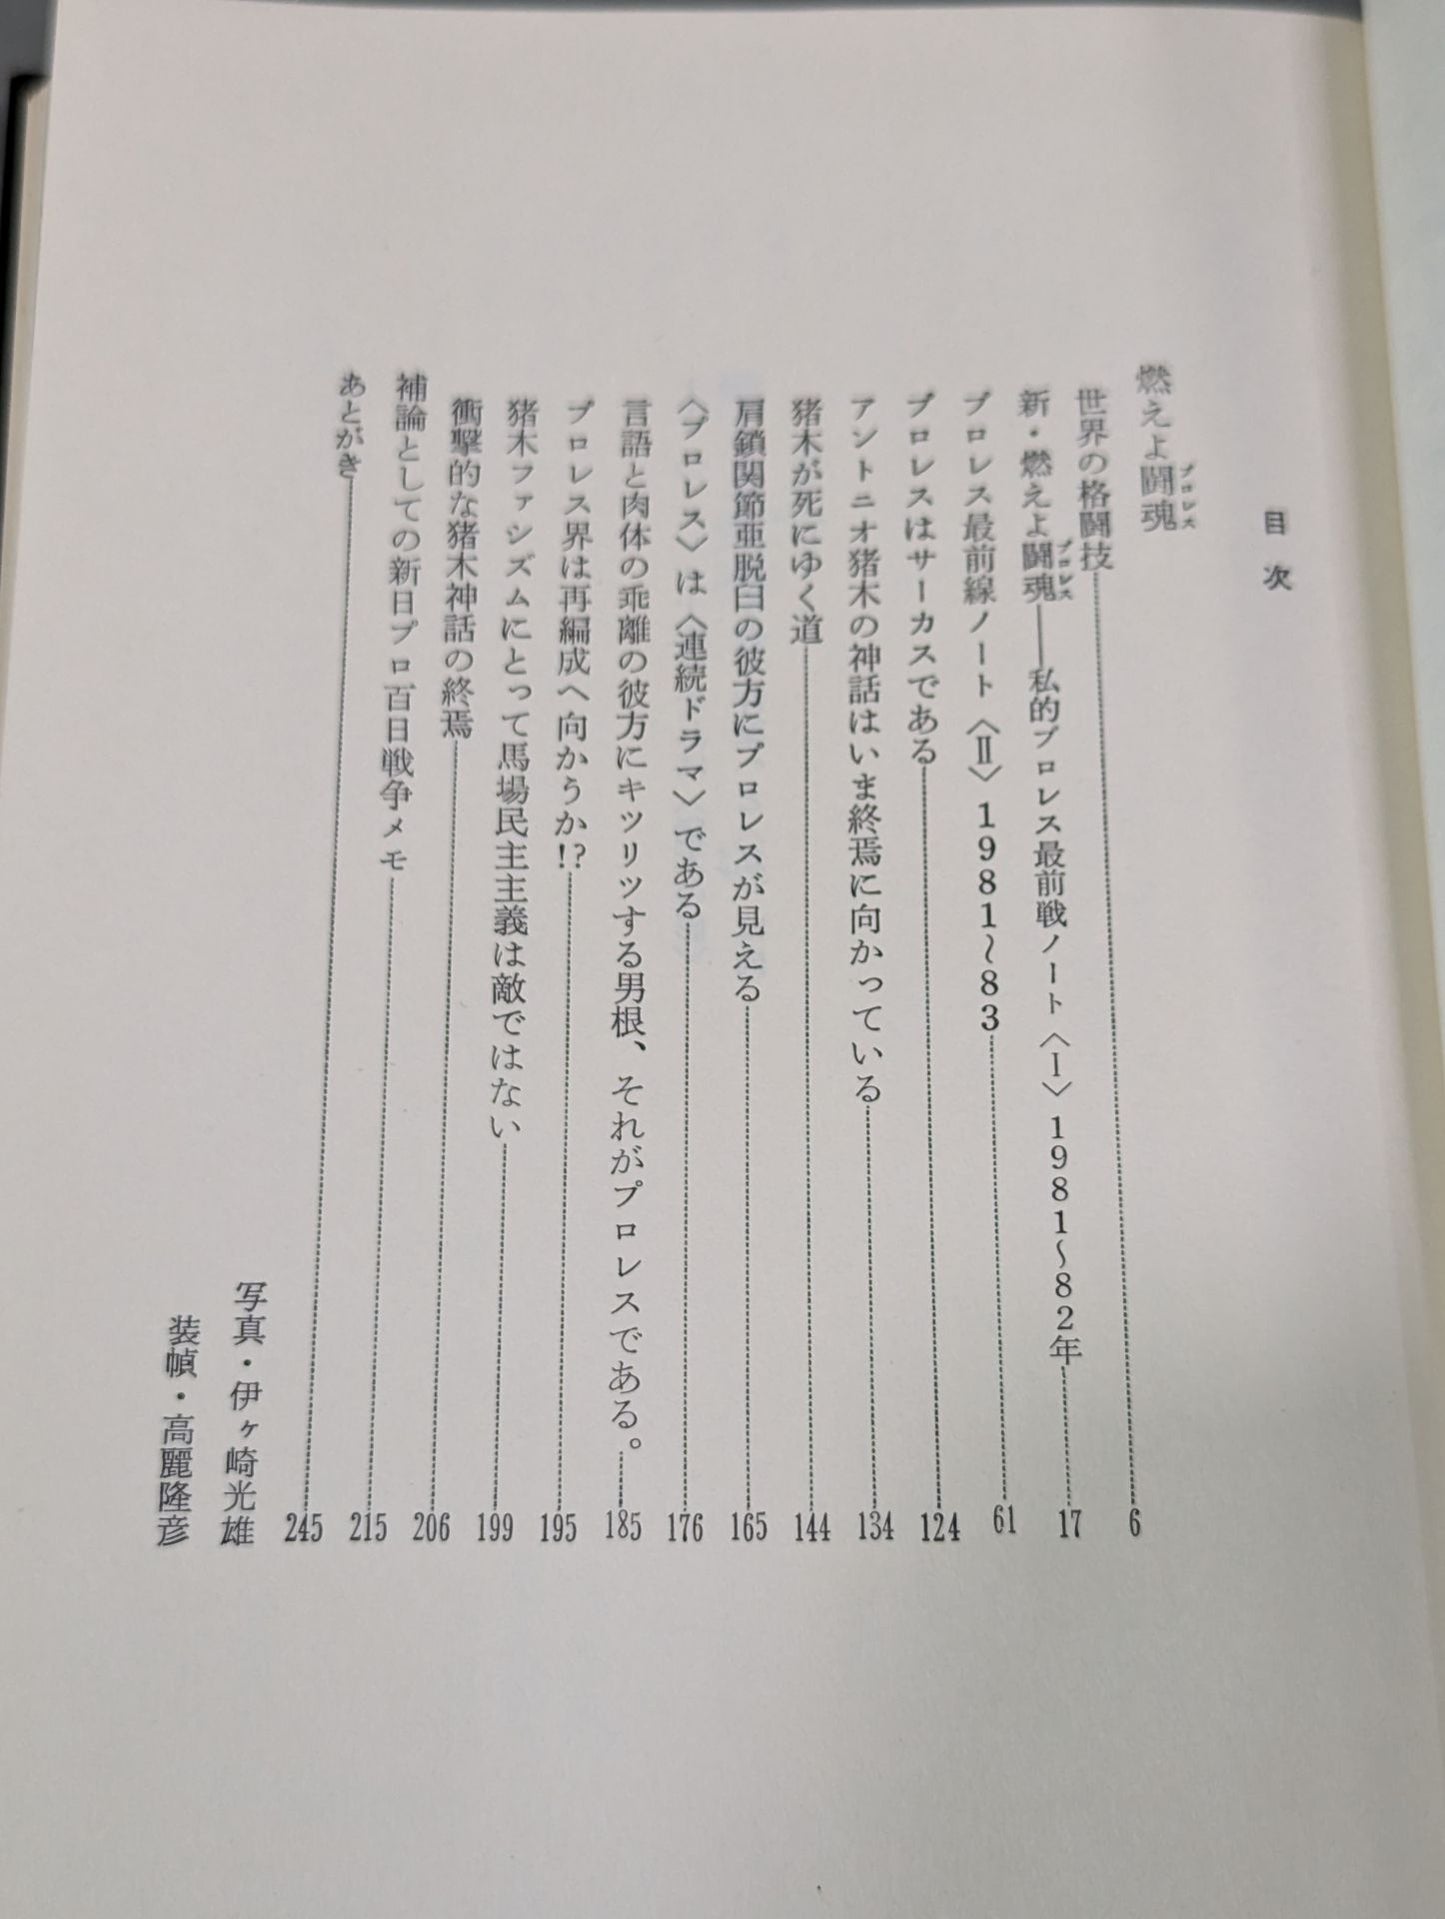 目次
燃えよ闘魂
プロレス
世界の格闘技 6
新・燃えよ闘魂――私的プロレス最前戦ノート〈Ⅰ〉1981〜82年 17
プロレス
プロレス最前線ノート〈Ⅱ〉1981〜83 61
プロレスはサーカスである 124
アントニオ猪木の神話はいま終焉に向かっている 134
猪木が死にゆく道 144
肩鎖関節亜脱臼の彼方にプロレスが見える 165
〈プロレス〉は〈連続ドラマ〉である 176
言語と肉体の乖離の彼方にキツリツする男根、それがプロレスである。 185
プロレス界は再編成へ向かうか!? 195
猪木ファシズムにとって馬場民主主義は敵ではない 199
衝撃的な猪木神話の終焉 206
補論としての新日プロ百日戦争メモ 215
あとがき 245
写真・伊ヶ崎光雄
装幀・高麗隆彦